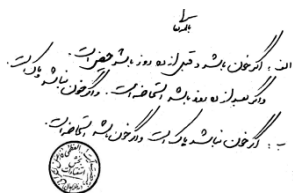 الف: اگر خون باشد و قبل از ده روز باشد حیض است.
و اگر بعد از ده روز باشد استحاضه است. و اگر خون نباشد پاک است.
ب: اگر خون نباشد پاک است و اگر خون باشد استحاضه است.